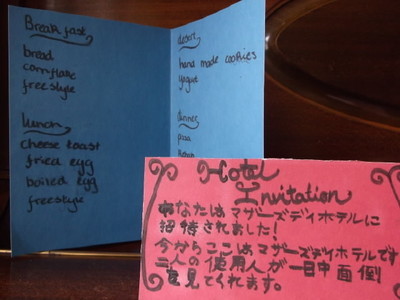 Breakfast
bread
cornflake
freestyle
Lunch
cheese toast
fried egg
boiled egg
freestyle
desert
hand made cookies
yogue
dinner
Hotel
Invitation
あなたはマザーズデイホテルに
招待されました!
今からここはマザーズデイホテルです
二人の使用人が一日中面倒
を見てくれます。